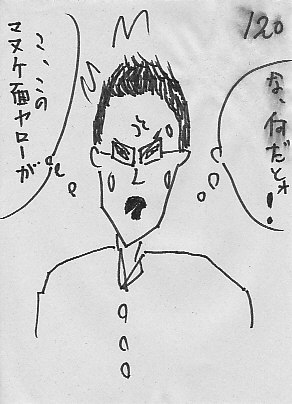 120
な、何だとォ!
こ、この
マヌケ面ヤローが